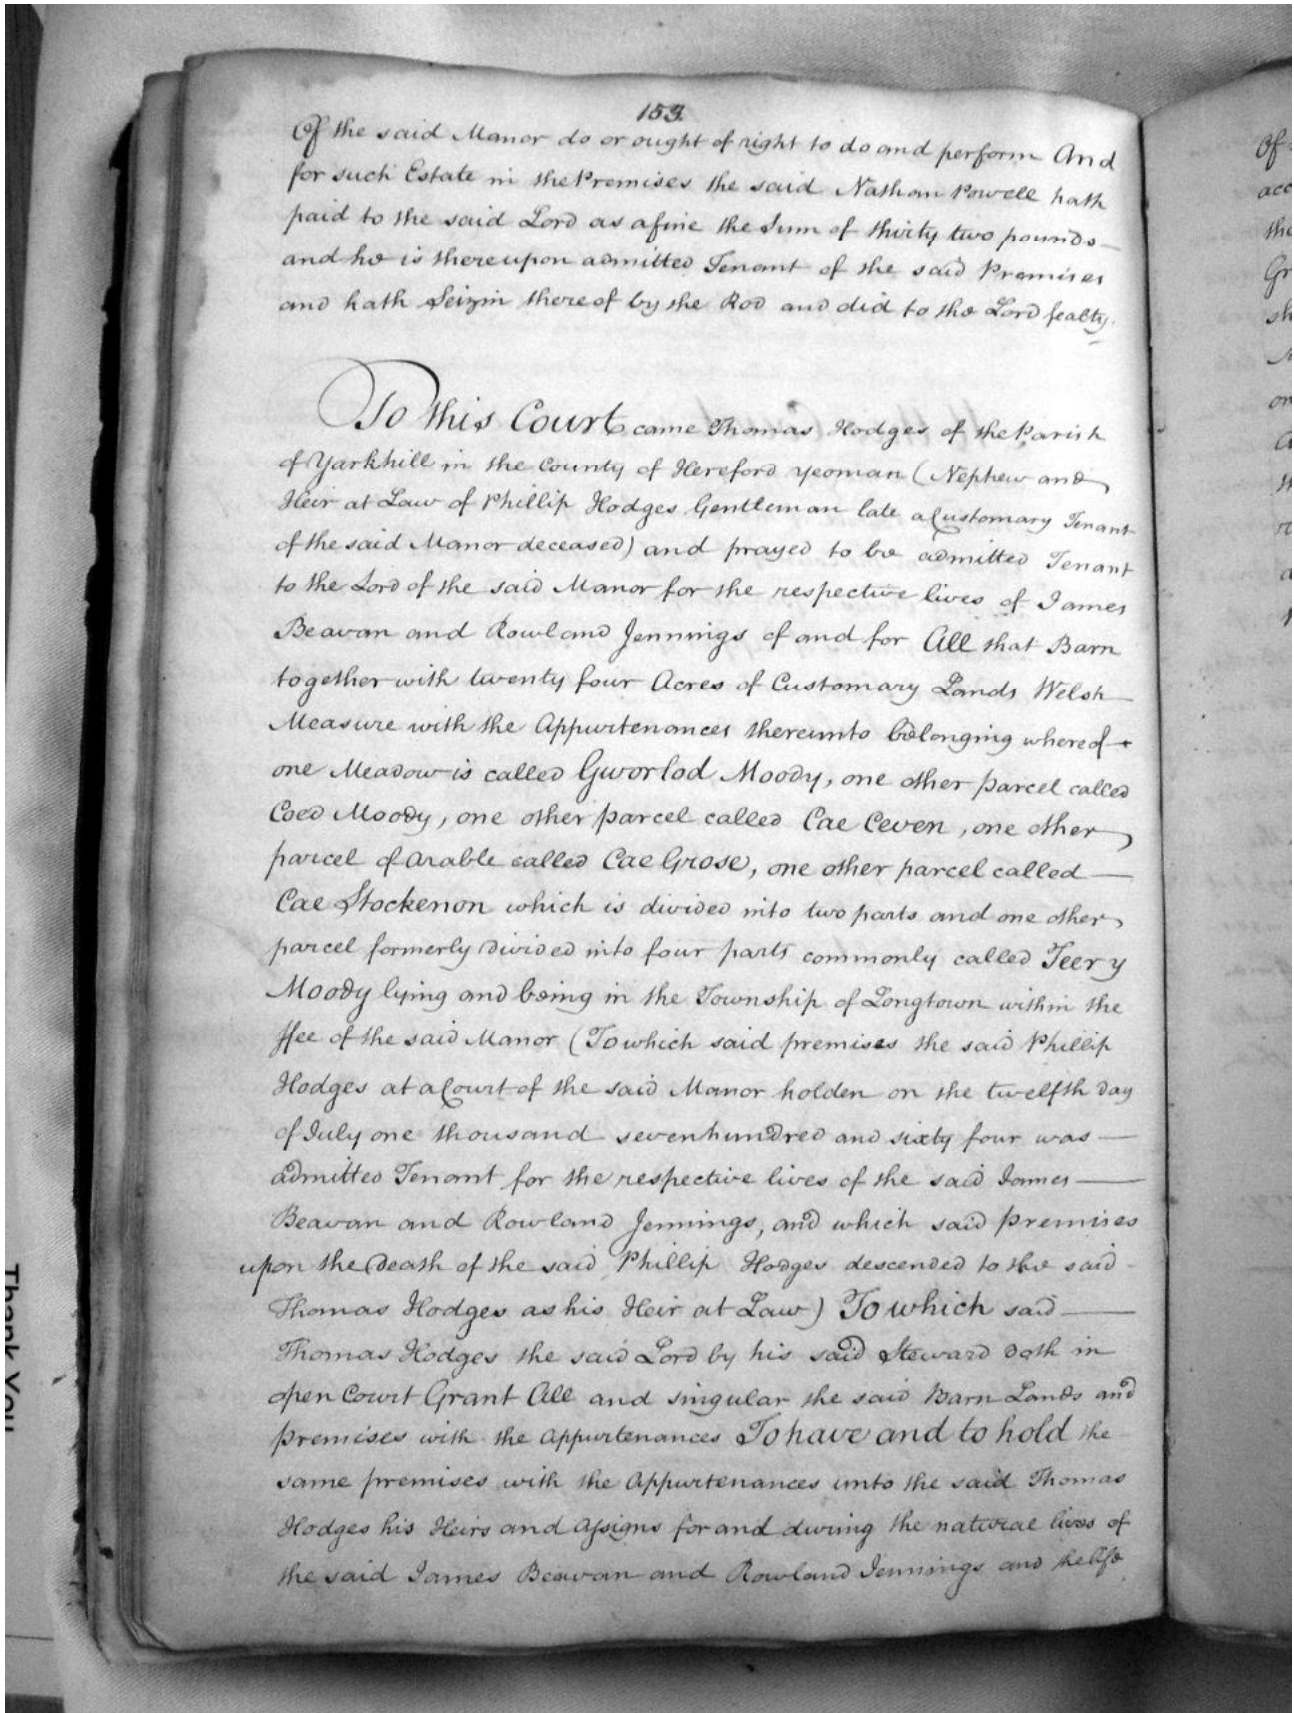 153
Of the said Manor do or ought of right to do and perform And
for such Estate in the Premises the said Nathan Powell hath
paid to the said Lord as a fine the Sum of thirty two pounds
and he is thereupon admitted Tenant of the said Premises
and hath Seizin thereof by the Rod and did to the Lord fealty.
To this Court came Thomas Hodges of the Parish
of Yarkhill in the County of Hereford yeoman (Nephew and
Heir at Law of Phillip Hodges Gentleman late a Customary Tenant
of the said Manor deceased) and prayed to be admitted Tenant
to the Lord of the said Manor for the respective lives of James
Beavan and Rowland Jennings of and for All that Barn
together with twenty four Acres of Customary Lands Welsh
Measure with the Appurtenances thereunto belonging whereof
one Meadow is called Gworlod Moody, one other parcel called
Coed Moody, one other parcel called Cae Ceven, one other
parcel of arable called Cae Grose, one other parcel called
Cae Stockenon which is divided into two parts and one other
parcel formerly divided into four parts commonly called Teer y
Moody lying and being in the Township of Longtown within the
ffee of the said Manor (To which said premises the said Phillip
Hodges at a Court of the said Manor holden on the twelfth day
of July one thousand seven hundred and sixty four was
admitted Tenant for the respective lives of the said James
Beavan and Rowland Jennings, and which said premises
upon the Death of the said Phillip Hodges descended to the said
Thomas Hodges as his Heir at Law) To which said
Thomas Hodges the said Lord by his said Steward doth in
open Court Grant All and singular the said Barn Lands and
premises with the appurtenances To have and to hold the
same premises with the Appurtenances unto the said Thomas
Hodges his Heirs and assigns for and during the natural lives of
the said James Beavan and Rowland Jennings and the life
Of
acc
the
Gr
sh
on
Thank You